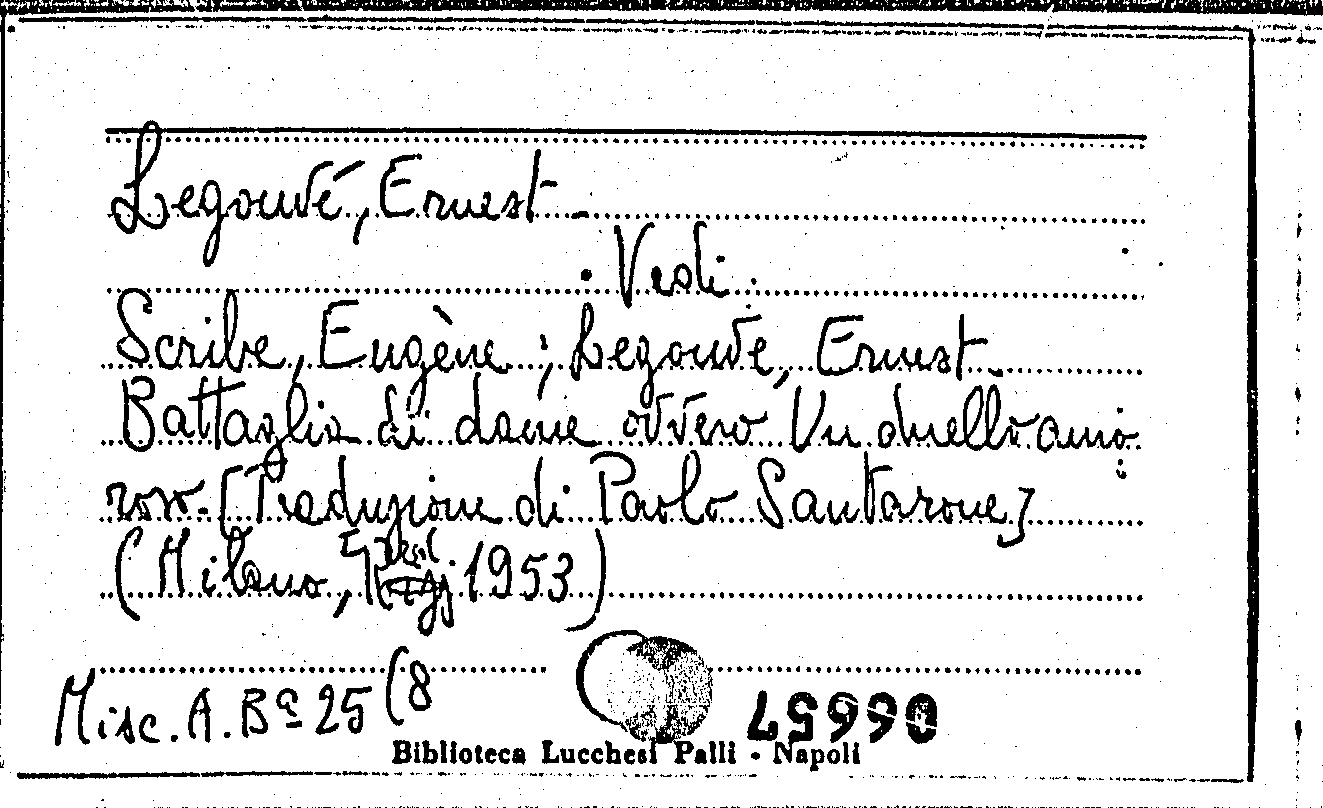 Legouvé, Ernest -
Vedi
Scribe, Eugène ; Legouvé, Ernest -
Battaglia di dame ovvero Un duello amo-
roso. [Traduzione di Paolo Santarone]
(Milano, 1953)
Misc. A. Bª 25 (8
066657
Biblioteca Lucchesi Palli - Napoli